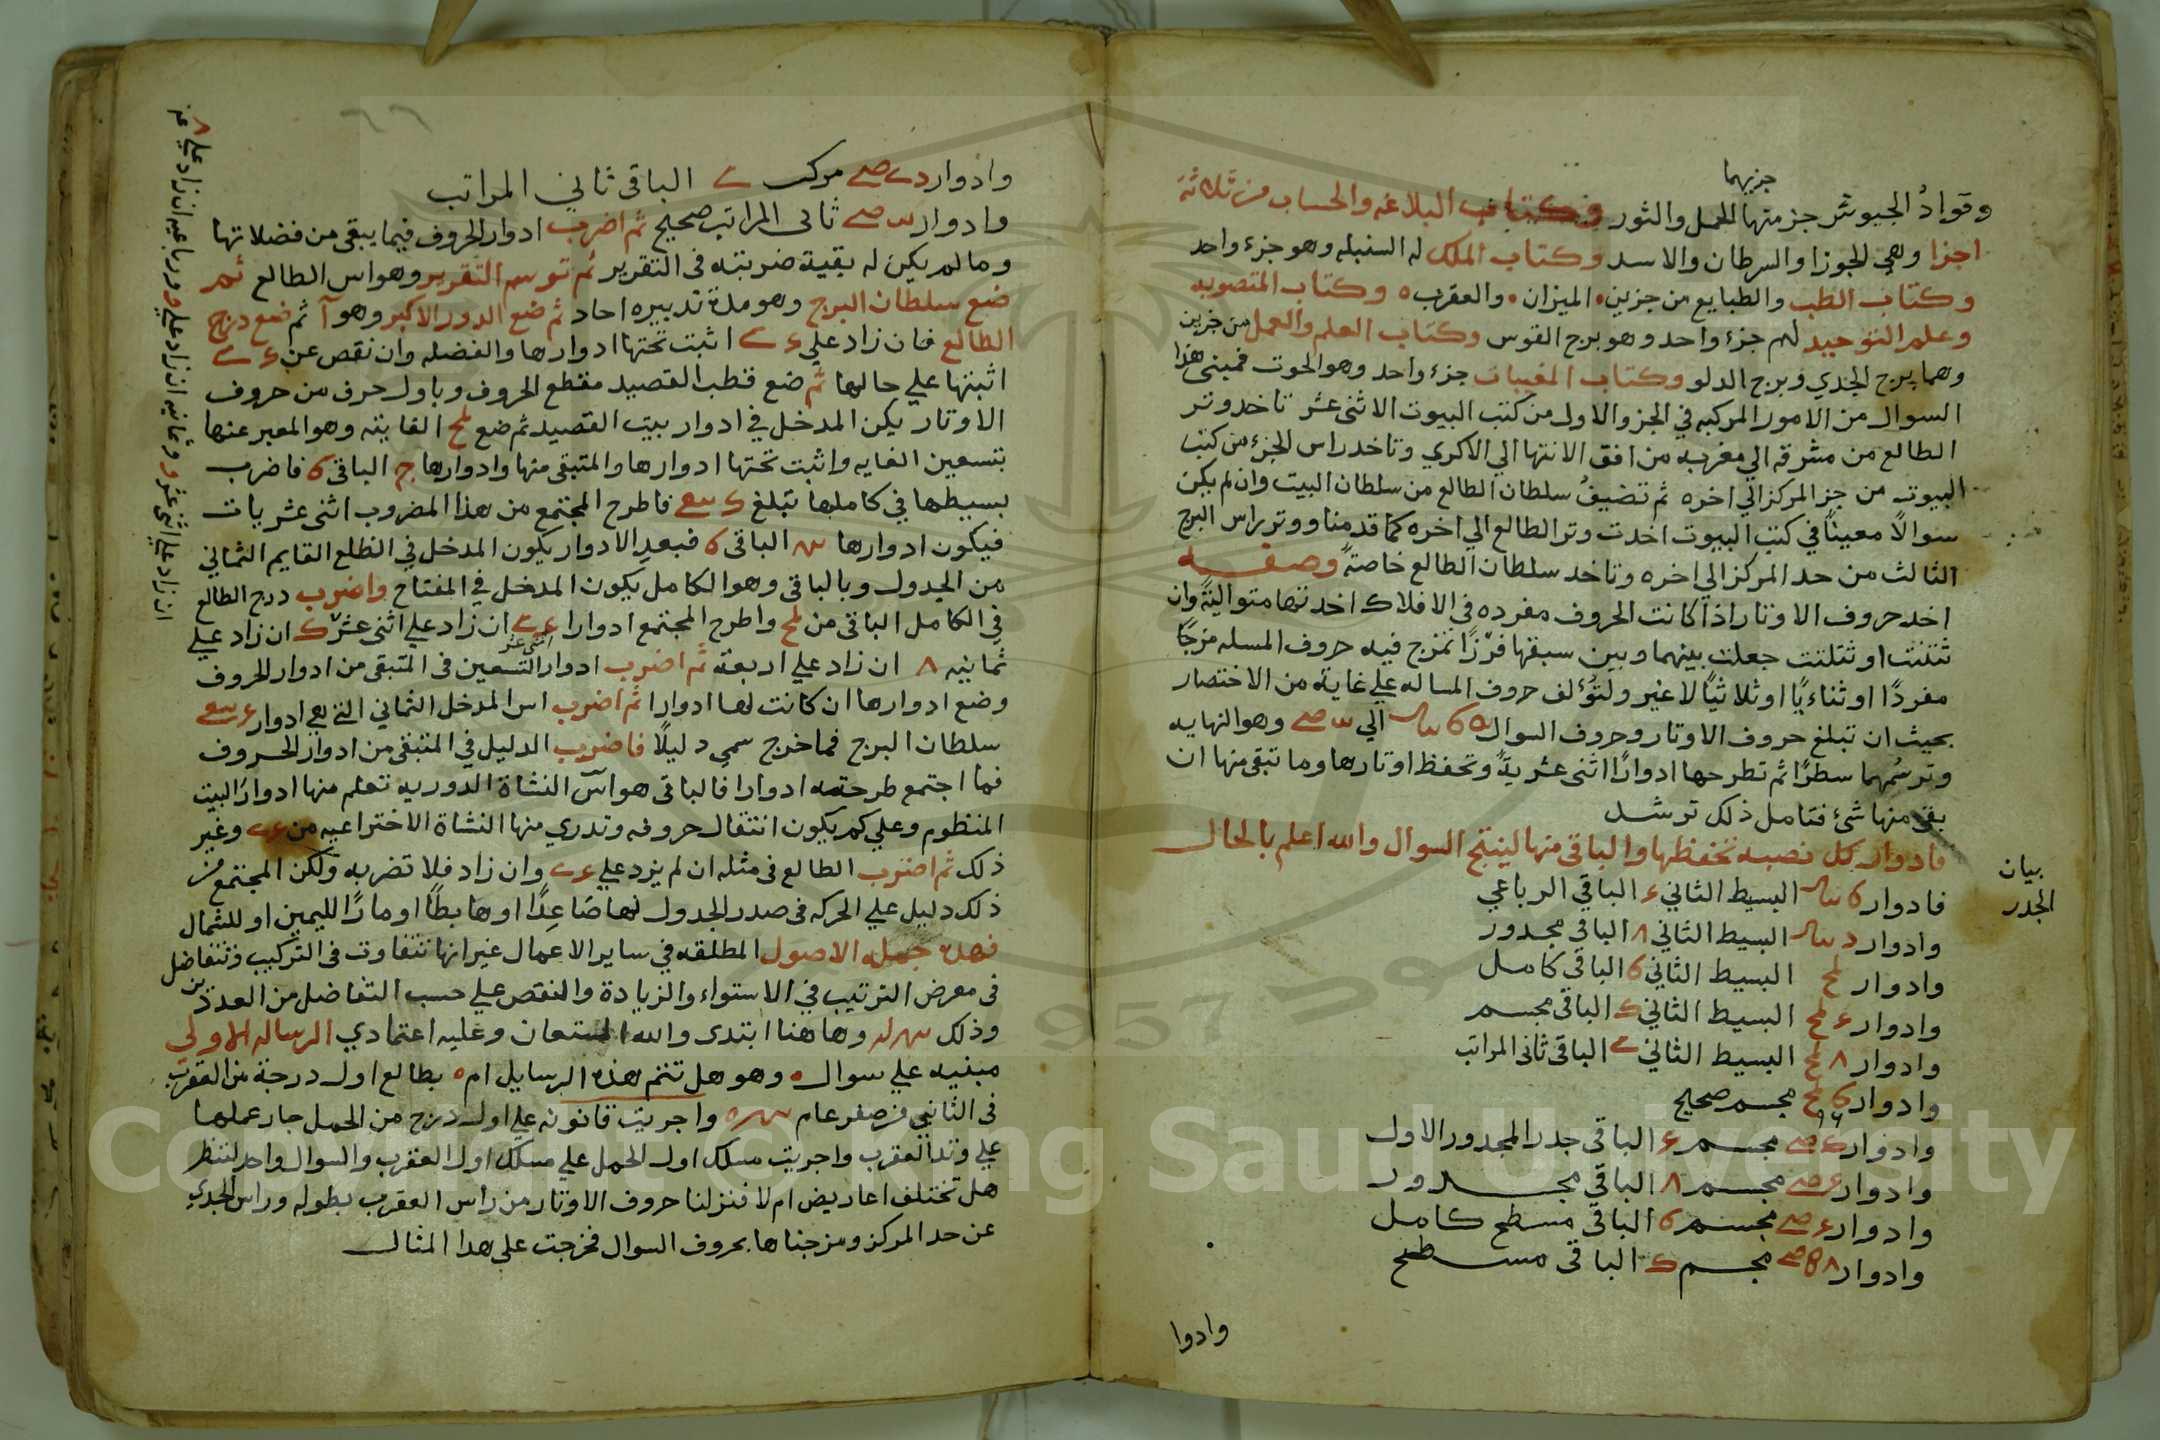 جزيهما
وقواد الجيوش جز منها الحمل والثور وكتاب البلاغه والحساب من ثلاثة
اجزا وهي الجوزا والسرطان والاسد وكتاب الملك له السنبله وهو جزء واحد
وكتاب الطب والطبايع من جزين الميزان والعقرب وكتاب
وعلم التوحيد لهم جزء واحد وهو برج القوس وكتاب العلم والعمل من جزين
وهما برج الجدي وبرج الدلو وكتاب المغيبات جزء واحد وهو الحوت فمبنى هذا
السوال من الامور المركبه في الجز والاول من كتب البيوت الاثنى عشر تاخد وتر
الطالع من مشرقه الي مغربه من افق الانتها الي الاكري وتاخد راس الجزء من كتب
البيوت من جز المركز الي اخره ثم تضيف سلطان الطالع من سلطان البيت وان لم يكن
سوالا معينا في كتب البيوت اخدت وتر الطالع الي اخره كما قدمنا ووتر راس البرج
الثالث من حد المركز الي اخره وتاخد سلطان الطالع خاصة وصفه
اخد حروف الاوتار اذا كانت الحروف مفرده في الافلاك اخدتها متوالية وان
تثنت او تثلثت جعلت بينهما وبين سبقها فرزا تمزج فيه حروف المسله مزجا
مفردا او ثناءيا او ثلاثيا لا غير ولتؤلف حروف المساله علي غاية من الاختصار
بحيث ان تبلغ حروف الاوتار وحروف السوال الي وهو النهايه
وترسمهما سطرا ثم تطرحها ادوارا اثنى عشرية وتحفظ اوتارها وما تبقى منها ان
بقى منها شئ فتامل ذلك ترشد
فادوار كل نصبه تحفظها والباقى منها لينتج السوال والله اعلم بالحال
بيان
الجدر
فادوار البسيط الثاني ٤ الباقي الرباعي
وادوار البسيط الثاني ٨ الباقي مجدور
وادوار لح البسيط الثاني ٦ الباقي كامل
وادوار لح البسيط الثاني الباقي مجسم
وادوار ٨ لح البسيط الثاني الباقي ثانى المراتب
وادوار ٦ لح مجسم صحيح
وادوار مجسم ٤ الباقي جدر المجدور الاول
وادوار مجسم ٨ الباقي مجدور
وادوار مجسم ٦ الباقي مسطح كامل
وادوار مجسم الباقي مسطح
وادوا
وادوار مركب الباقي ثاني المراتب
وادوار ثاني المراتب صحيح ثم اضرب ادوار الحروف فيما يبقى من فضلاتها
وما لم يكن له بقية ضربته في التقرير ثم توسم التقرير وهو اس الطالع ثم
ضع سلطان البرج وهو مدة تدبيره احاد ثم ضع الدور الاكبر وهو آ ثم ضع درج
الطالع فان زاد علي اثبت تحتها ادوارها والفضله وان نقص عن
اثبتها علي حالها ثم ضع قطب القصيد مقطع الحروف وباول حرف من حروف
الاوتار يكن المدخل في ادوار بيت القصيد ثم ضع لح الغايته وهو المعبر عنها
بتسعين الغايه واثبت تحتها ادوارها والمتبقى منها وادوارها ج الباقى ٥ فاضرب
بسيطها في كاملها تبلغ فاطرح المجتمع من هذا المضروب اثنى عشريات
فيكون ادوارها الباقى ٥ فبعد الادوار يكون المدخل في الظلع القايم الثماني
من الجدول وبالباقى وهو الكامل يكون المدخل في المفتاح واضرب درج الطالع
في الكامل الباقى من لح واطرح المجتمع ادوارا ان زاد علي اثنى عشر ان زاد علي
اثنى عشر
ثمانيه ٨ ان زاد علي اربعة ثم اضرب ادوار التسعين في المتبقى من ادوار الحروف
وضع ادوارها ان كانت لها ادوارا ثم اضرب اس المدخل الثماني التي هي ادوار
سلطان البرج فما خرج سمي دليلا فاضرب الدليل في المتبقى من ادوار الحروف
فما اجتمع طرحته ادوارا فالباقى هو اس النشاة الدوريه تعلم منها ادوار البيت
المنظوم وعلي كم يكون انتقال حروفه وتدري منها النشاة الاختراعيه من وغير
ذلك ثم اضرب الطالع في مثله ان لم يزد علي وان زاد فلا تضربه ولكن المجتمع من
ذلك دليل علي الحركه في صدر الجدول لها صاعدا او هابطا او مارا لليمين او للشمال
فهذه جمله الاصول المطلقه في ساير الاعمال غير انها تتفاوت في التركيب وتتفاضل
في معرض الترتيب في الاستواء والزيادة والنقص علي حسب التفاضل من العددين
وذلك وهاهنا ابتدى والله المستعان وعليه اعتمادي الرساله الاولى
مبنيه علي سوال وهو هل تتم هذه الرسايل ام بطالع اول درجة من العقرب
في الثاني من صفر عام واجريت قانونه علي اول درج من الحمل جار عملها
علي وتد العقرب واجريت مسلك اول الحمل علي مسلك اول العقرب والسوال واحد لننظر
هل تختلف اعاريض ام لا فنزلنا حروف الاوتار من راس العقرب بطوله وراس الجدي
عن حد المركز ومزجناها بحروف السوال فخرجت علي هذا المثال
ان زاد علي اثنى عشر وثمانيه ان زاد علي ورباعيه ان زاد علي ٨
Copyright © King Saud University
1957